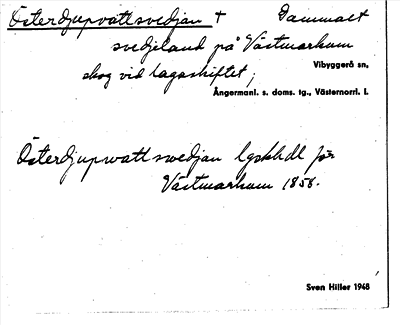 Österdjupvattsvedjan + Gammalt
svedjeland på Västmarkum
skog vid lagaskiftet;
Vibyggerå sn,
Ångermanl. s. doms. tg., Västernorrl. l.
Österdjupvattswedjan lgskhdl för
Västmarkum 1858.
Sven Hiller 1968